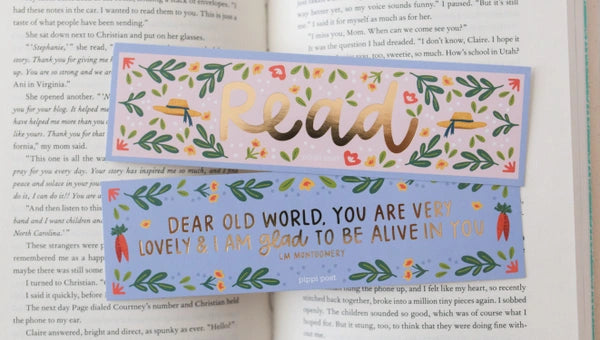 had the notes in the car. I wanted to read them to you. This is just a
taste of what people have been sending."
She sat down next to Christian and put on her glasses.
"'Stephanie,'" she read,
story. Thank you for giving
You are so strong and we are
Ani in Virginia."
She opened another. "'N
you for your blog. It helped me
have helped me more than you
like yours. Thank you for that
fornia," my mom said.
"This one is all the wa
pray for you every day. Your story has inspired me so
peace and solace in your jo
do, I can do it!! You are am
"And then to this
hand and I want children an
North Carolina.'"
These strangers were p
remembered me as a happe
maybe there was still some
I turned to Christian. "
I said it quickly, before
The next day Page dialed Courtney's number and Christian held
the phone to my ear.
Claire answered, bright and direct, as spunky as ever. "Hello!"
way better yet, so my voice sounds funny." I paused. "But it's still
me," I said it for myself as much as for her.
"I miss you, Mom. When can we come see you?"
It was the question I had dreaded. "I don't know, Claire. I hope it
too, sweetie, so much. How's school in Utah?
Read
pippi post
DEAR OLD WORLD, YOU ARE VERY
LOVELY & I AM glad TO BE ALIVE IN YOU
LM MONTGOMERY
pippi post
the phone up, and I felt like my heart, so recently
stitched back together, broke into a million tiny pieces again. I sobbed
openly. The children sounded so good, which was of course what I
hoped for. But it stung, too, to think that they were doing fine with-